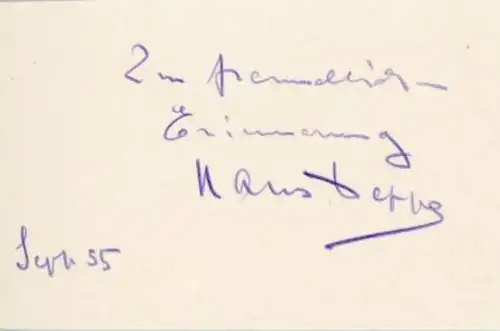 Zur freundlichen
Erinnerung
Hans Deppe
Sept. 55